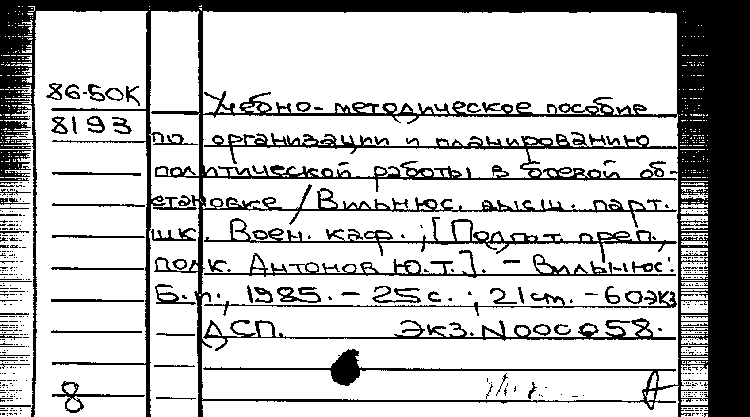 86-50К
8193
Учебно-методическое пособие
по организации и планированию
политической работы в боевой об-
становке / Вильнюс. высш. парт.
шк. Воен. каф. ; [Подгот. преп.,
полк. Антонов Ю.Т.]. - Вильнюс:
Б.и., 1985. - 25 с. ; 21 см. - 60 экз
ДСП. Экз. N000058.
8